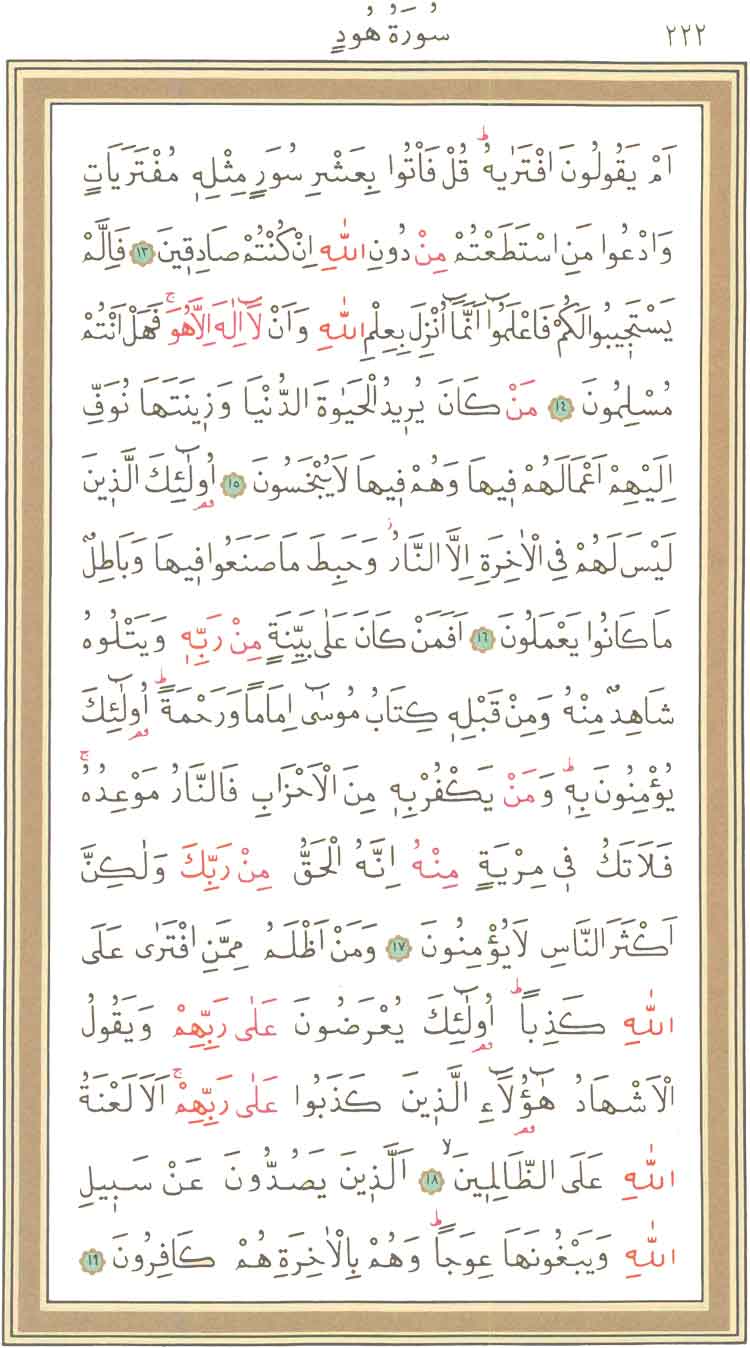 سُورَةُ هُودٍ ٢٢٢
اَمْ يَقُولُونَ افْتَرٰيهُۜ قُلْ فَأْتُوا بِعَشْرِ سُوَرٍ مِثْلِه۪ مُفْتَرَيَاتٍ
وَادْعُوا مَنِ اسْتَطَعْتُمْ مِنْ دُونِ اللّٰهِ اِنْ كُنْتُمْ صَادِق۪ينَ ﴿١٣﴾ فَاِلَّمْ
يَسْتَج۪يبُوا لَكُمْ فَاعْلَمُٓوا اَنَّمَٓا اُنْزِلَ بِعِلْمِ اللّٰهِ وَاَنْ لَٓا اِلٰهَ اِلَّا هُوَۚ فَهَلْ اَنْتُمْ
مُسْلِمُونَ ﴿١٤﴾ مَنْ كَانَ يُر۪يدُ الْحَيٰوةَ الدُّنْيَا وَز۪ينَتَهَا نُوَفِّ
اِلَيْهِمْ اَعْمَالَهُمْ ف۪يهَا وَهُمْ ف۪يهَا لَا يُبْخَسُونَ ﴿١٥﴾ اُو۬لٰٓئِكَ الَّذ۪ينَ
لَيْسَ لَهُمْ فِي الْاٰخِرَةِ اِلَّا النَّارُۘ وَحَبِطَ مَا صَنَعُوا ف۪يهَا وَبَاطِلٌ
مَا كَانُوا يَعْمَلُونَ ﴿١٦﴾ اَفَمَنْ كَانَ عَلٰى بَيِّنَةٍ مِنْ رَبِّه۪ وَيَتْلُوهُ
شَاهِدٌ مِنْهُ وَمِنْ قَبْلِه۪ كِتَابُ مُوسٰٓى اِمَاماً وَرَحْمَةًۜ اُو۬لٰٓئِكَ
يُؤْمِنُونَ بِه۪ۜ وَمَنْ يَكْفُرْ بِه۪ مِنَ الْاَحْزَابِ فَالنَّارُ مَوْعِدُهُۚ
فَلَا تَكُ ف۪ي مِرْيَةٍ مِنْهُ اِنَّهُ الْحَقُّ مِنْ رَبِّكَ وَلٰكِنَّ
اَكْثَرَ النَّاسِ لَا يُؤْمِنُونَ ﴿١٧﴾ وَمَنْ اَظْلَمُ مِمَّنِ افْتَرٰى عَلَى
اللّٰهِ كَذِباًۜ اُو۬لٰٓئِكَ يُعْرَضُونَ عَلٰى رَبِّهِمْ وَيَقُولُ
الْاَشْهَادُ هٰٓؤُ۬لَٓاءِ الَّذ۪ينَ كَذَبُوا عَلٰى رَبِّهِمْۚ اَلَا لَعْنَةُ
اللّٰهِ عَلَى الظَّالِم۪ينَۙ ﴿١٨﴾ اَلَّذ۪ينَ يَصُدُّونَ عَنْ سَب۪يلِ
اللّٰهِ وَيَبْغُونَهَا عِوَجاًۜ وَهُمْ بِالْاٰخِرَةِ هُمْ كَافِرُونَ ﴿١٩﴾